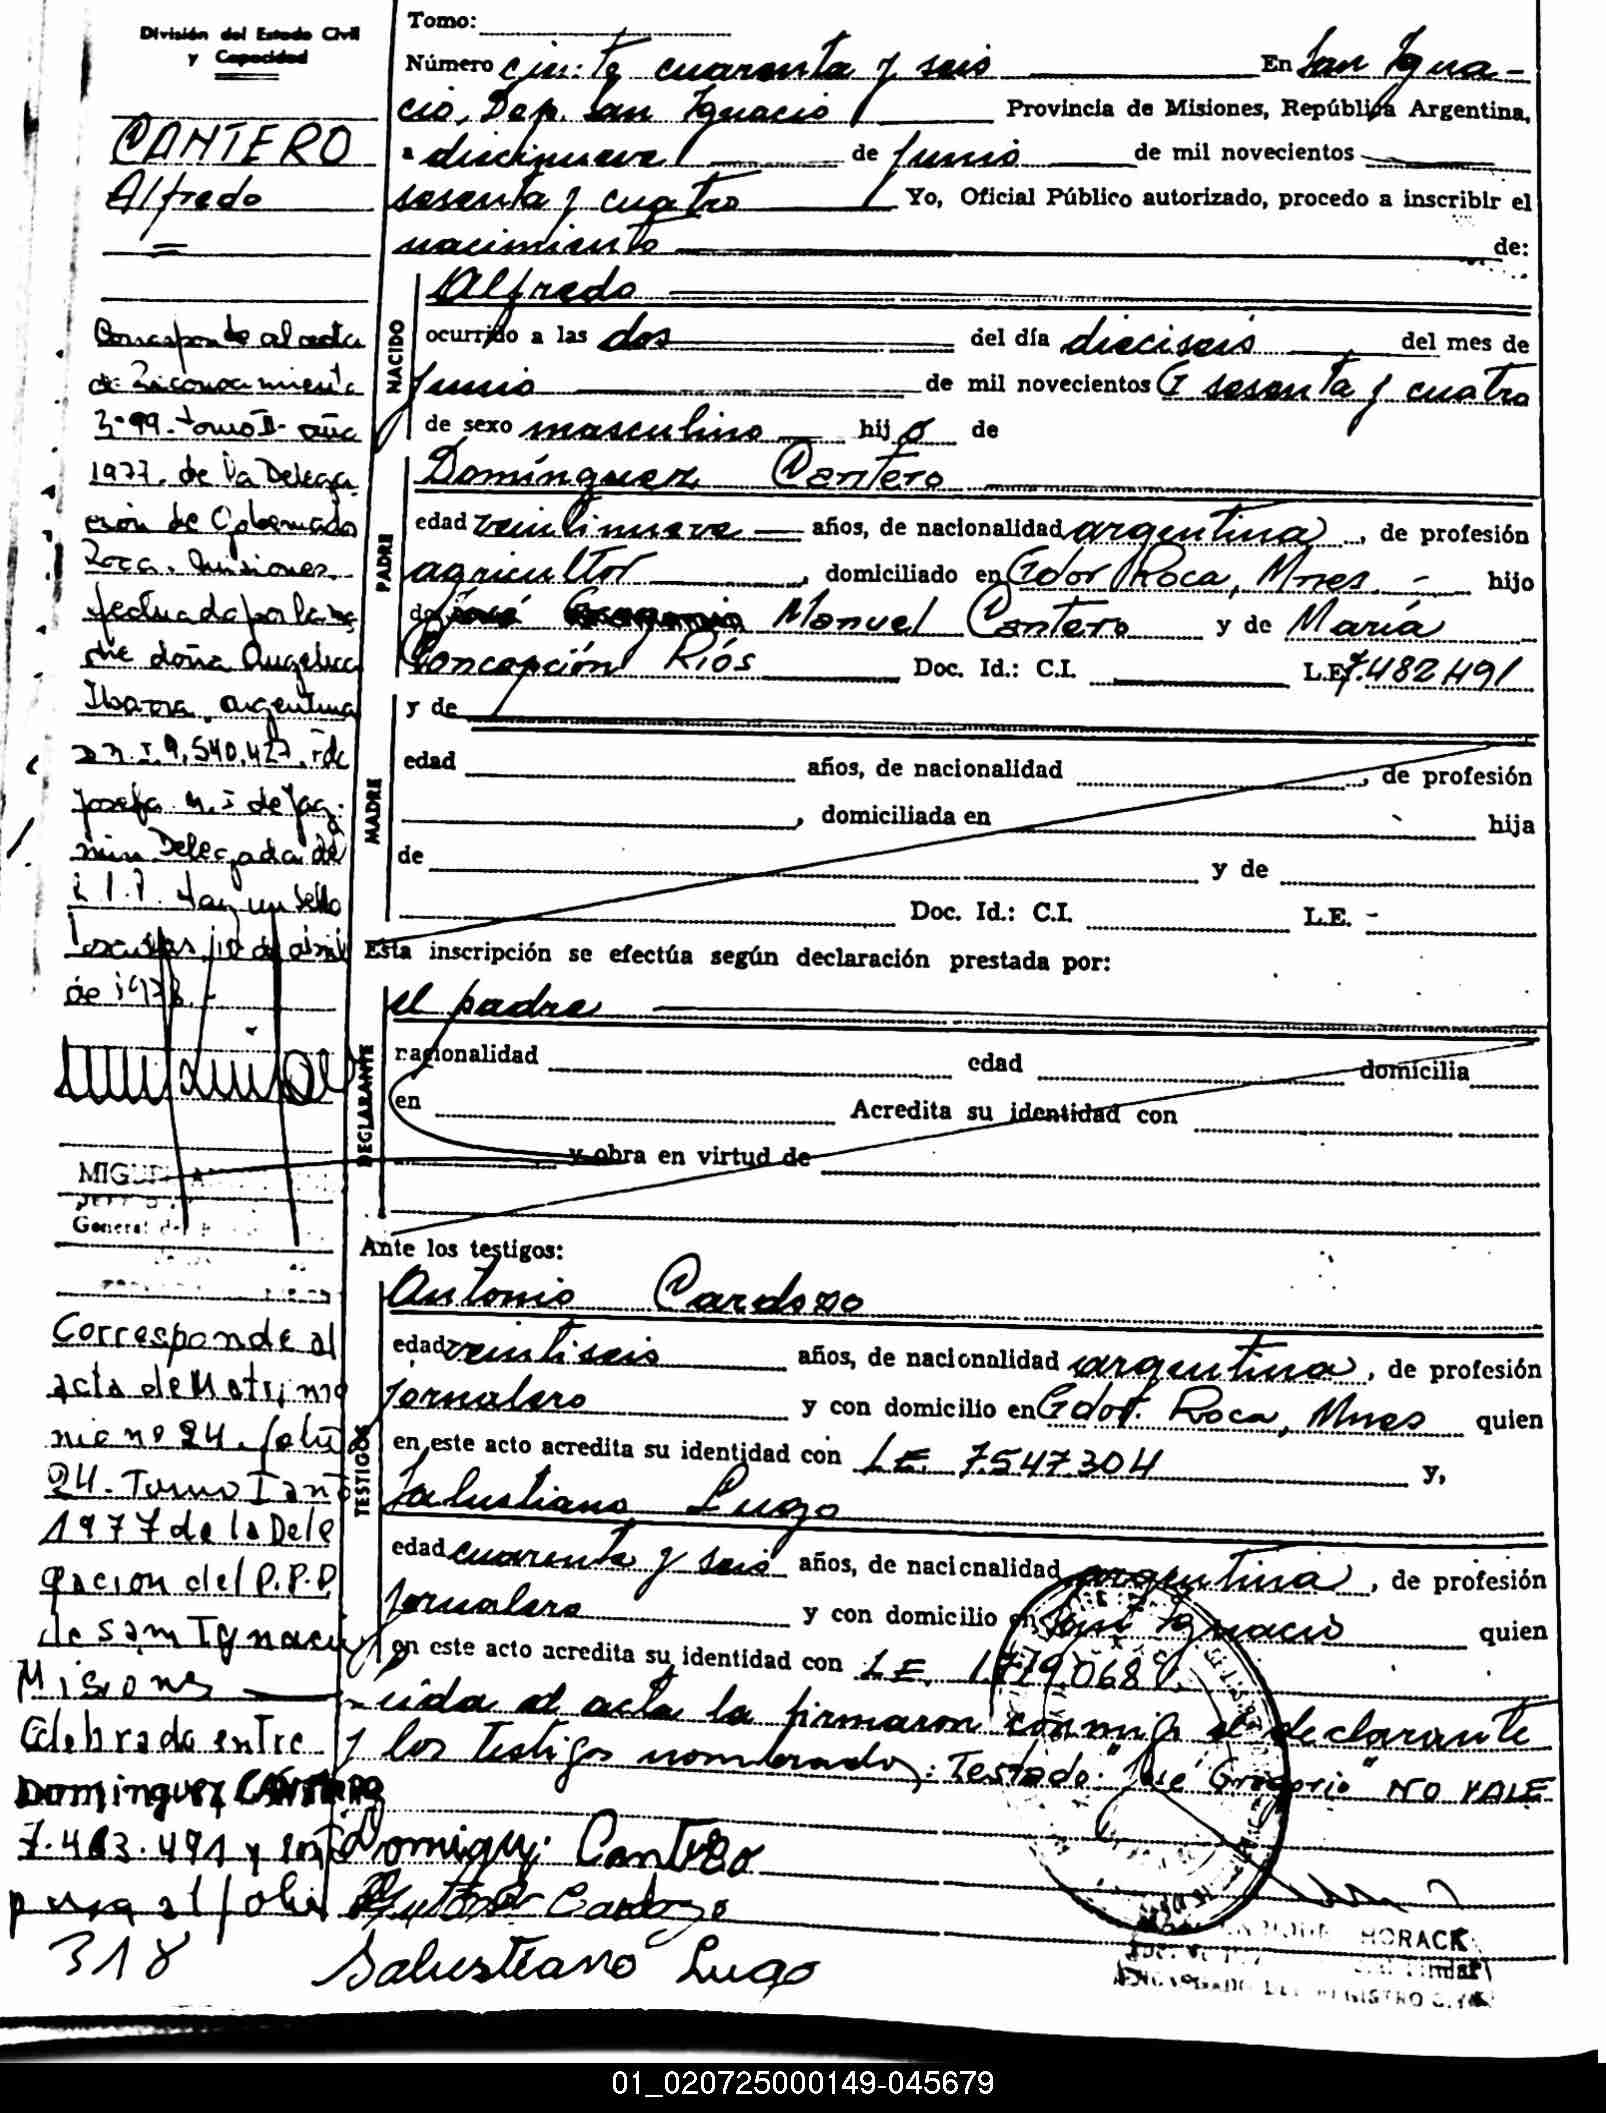 División del Estado Civil
y Capacidad
CANTERO
Alfredo
Corresponde al acta
de Reconocimiento
3-99-tomo II-año
1977. de la Delega
ción de Gobernado
Roca. Misiones
fectuada por la ma
dre doña Angelica
Ibarra, argentina
9,540,427. Fdo
Josefa M. I de Jaz-
min Delegada de
Hay un sello
Posadas, 10 de abril
de 1978.-
MIGU
General de
Corresponde al
acta de Matrimo
nio nº 24. folio
24. Tomo I año
1977 de la Dele
gacion del P.P.D
de San Ignacio
Misiones
Celebrado entre
Dominguez CANTERO
y
pasa al folio
318
Tomo:
Número ciento cuarenta y seis En San Igna-
cio, Dep. San Ignacio Provincia de Misiones, República Argentina,
a diecinueve de junio de mil novecientos
sesenta y cuatro Yo, Oficial Público autorizado, procedo a inscribir el
nacimiento de:
NACIDO
Alfredo
ocurrido a las dos del día dieciseis del mes de
junio de mil novecientos sesenta y cuatro
de sexo masculino hijo de
PADRE
Domínguez Cantero
edad veintinueve años, de nacionalidad argentina, de profesión
agricultor, domiciliado en Gdor Roca, Mnes.- hijo
de José Gregorio Manuel Cantero y de María
Concepción Ríos Doc. Id.: C.I. L.E. 7.482491
MADRE
y de
edad años, de nacionalidad , de profesión
, domiciliada en hija
de y de
Doc. Id.: C.I. L.E. -
Esta inscripción se efectúa según declaración prestada por:
DECLARANTE
el padre
nacionalidad edad domicilia
en Acredita su identidad con
y obra en virtud de
Ante los testigos:
TESTIGOS
Antonio Cardozo
edad veintiseis años, de nacionalidad argentina, de profesión
jornalero y con domicilio en Gdor. Roca, Mnes quien
en este acto acredita su identidad con LE. 7.547.304 y,
Salustiano Lugo
edad cuarenta y seis años, de nacionalidad argentina, de profesión
jornalero y con domicilio en San Ignacio quien
en este acto acredita su identidad con LE. 1.719.068
Leida el acta la firmaron conmigo el declarante
y los testigos nombrados: Testado: "José Gregorio" NO VALE
Dominguez Cantero
Antonio Cardozo
Salustiano Lugo
HORACK
ENCARGADO DEL REGISTRO CIVIL
01_020725000149-045679